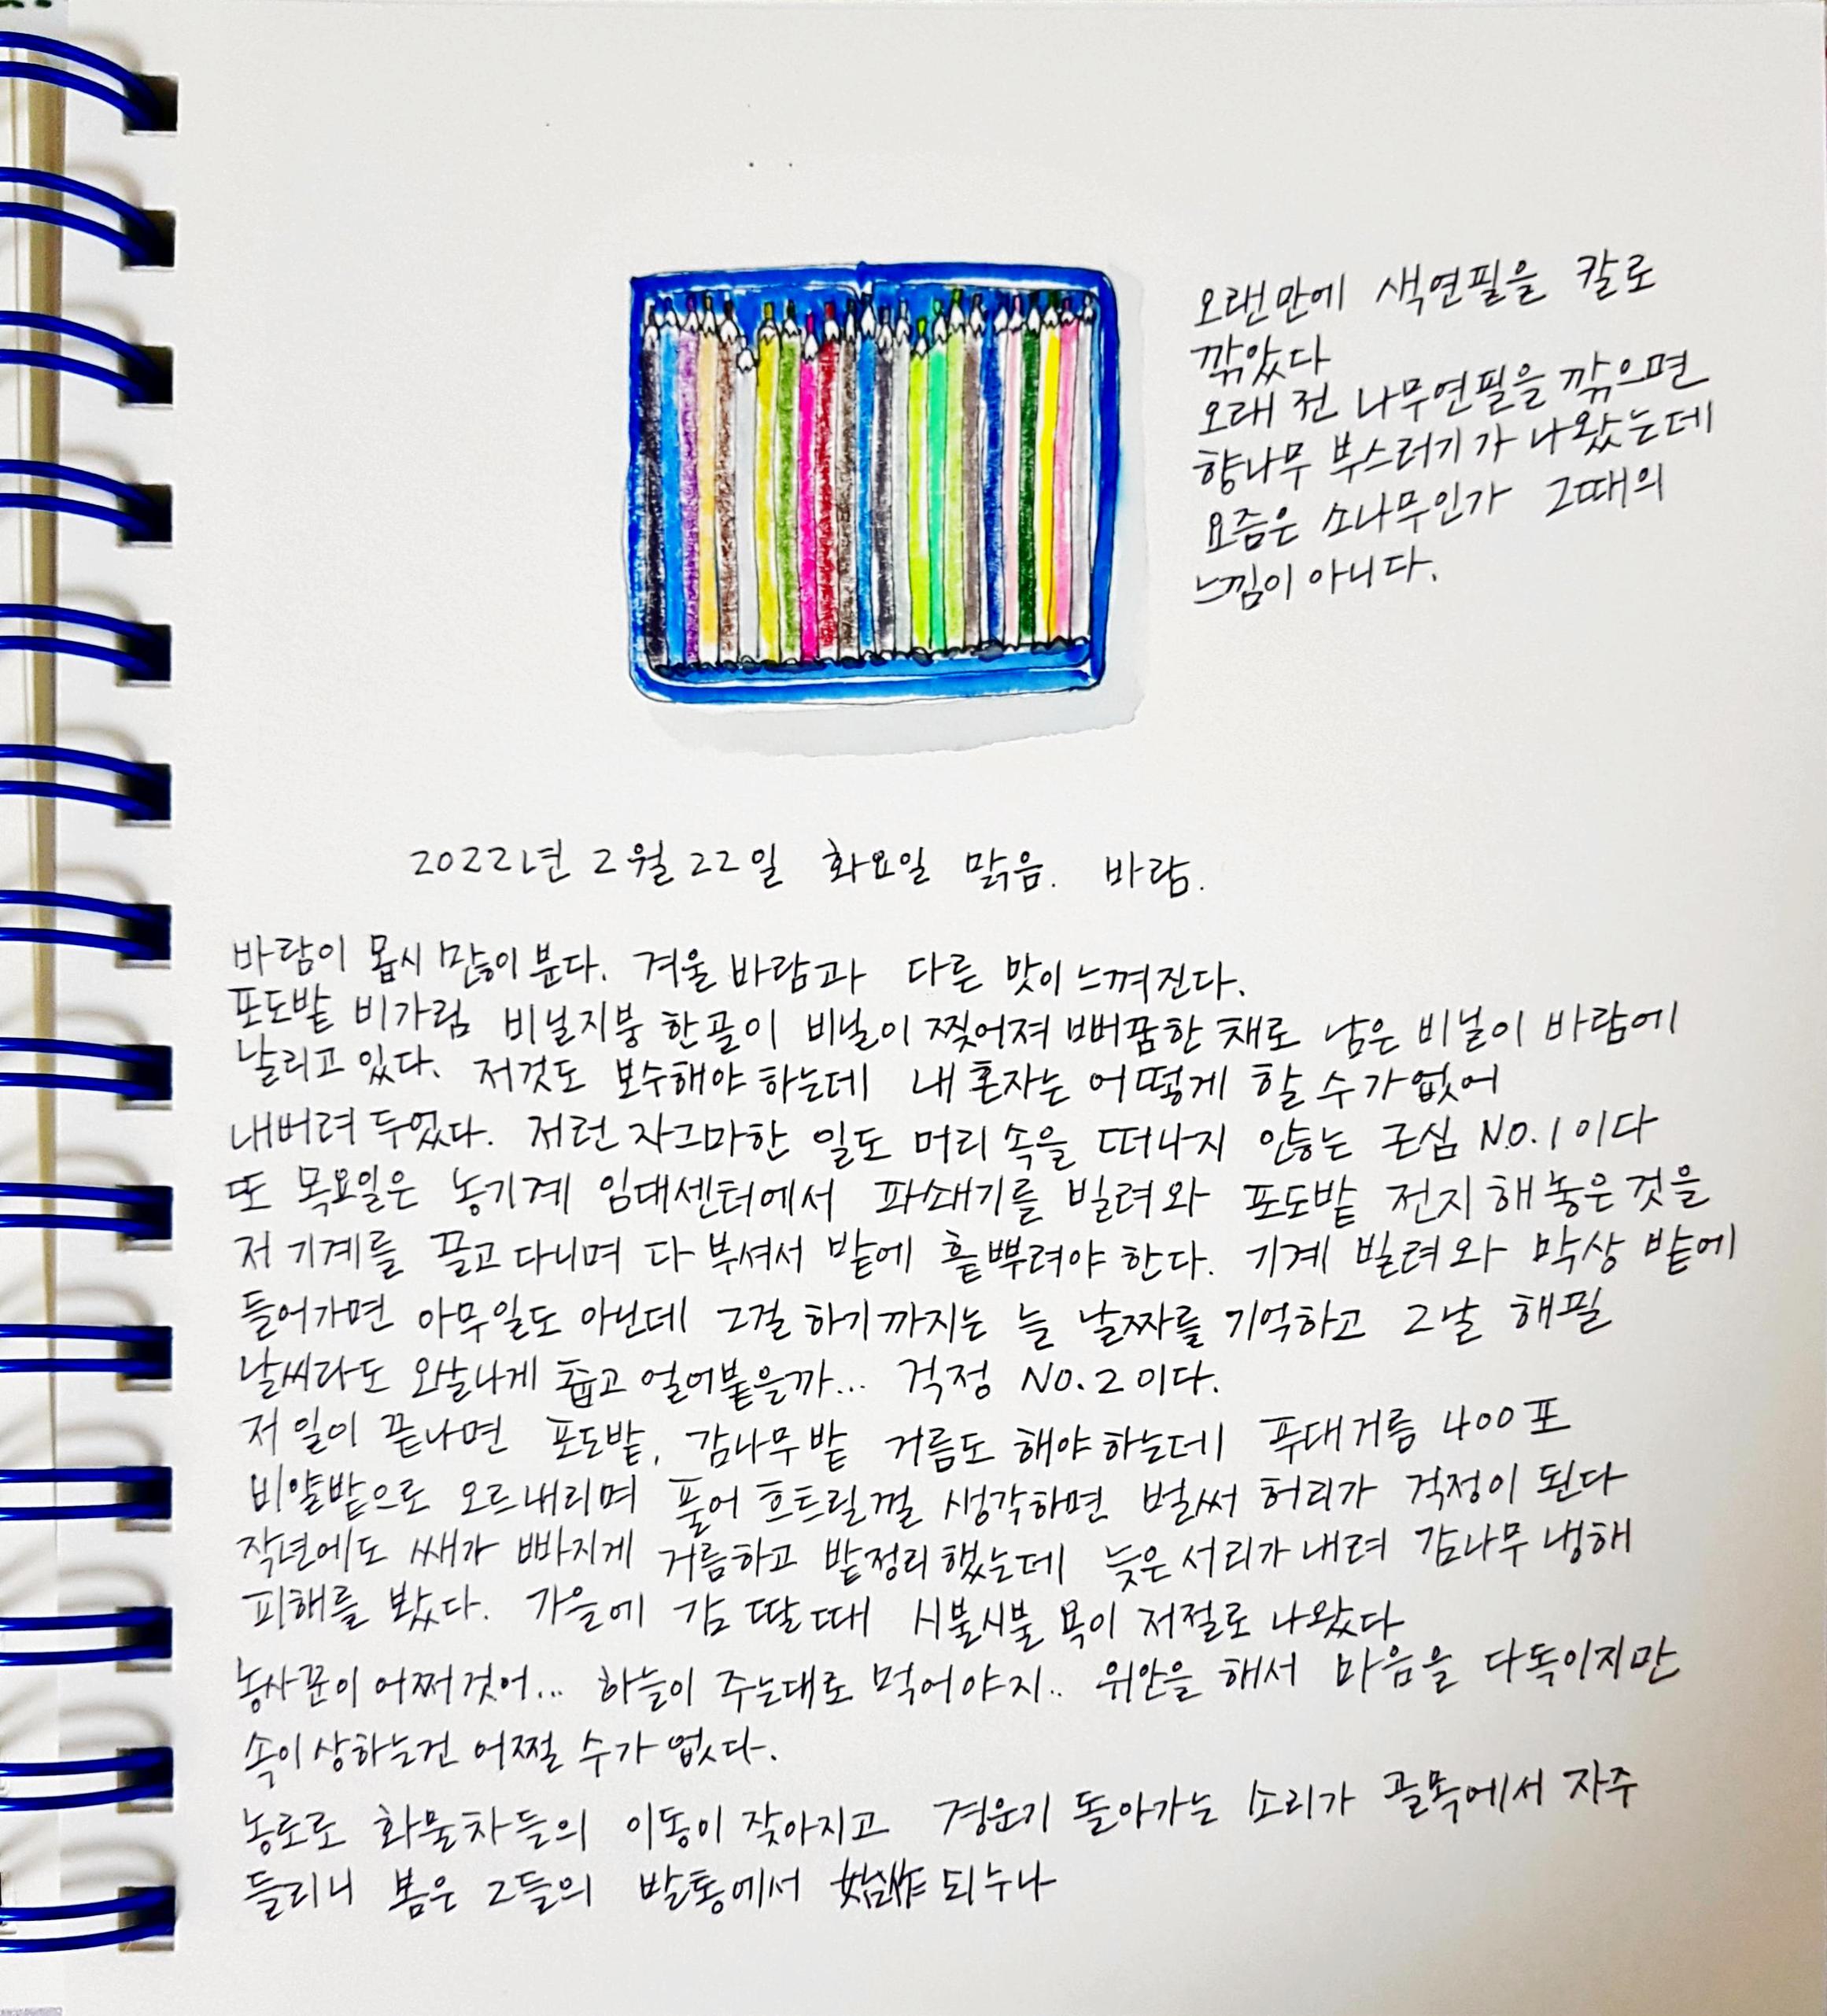 오랜만에 색연필을 칼로
깎았다
오래 전 나무연필을 깎으면
향나무 부스러기가 나왔는데
요즘은 소나무인가 그때의
느낌이 아니다.
2022년 2월 22일 화요일 맑음. 바람.
바람이 몹시 많이 분다. 겨울 바람과 다른 맛이 느껴진다.
포도밭 비가림 비닐지붕 한골이 비닐이 찢어져 뻐꿈한 채로 남은 비닐이 바람에
날리고 있다. 저것도 보수해야 하는데 내 혼자는 어떻게 할 수가 없어
내버려 두었다. 저런 자그마한 일도 머리 속을 떠나지 않는 근심 NO.1이다
또 목요일은 농기계 임대센터에서 파쇄기를 빌려와 포도밭 전지 해 놓은 것을
저 기계를 끌고 다니며 다 부셔서 밭에 흩뿌려야 한다. 기계 빌려와 막상 밭에
들어가면 아무일도 아닌데 그걸 하기까지는 늘 날짜를 기억하고 그날 해필
날씨라도 와살나게 춥고 얼어붙을까... 걱정 NO.2이다.
저 일이 끝나면 포도밭, 감나무밭 거름도 해야하는데 푸대거름 400포
비얄밭으로 오르내리며 풀어 흐트릴껄 생각하면 벌써 허리가 걱정이 된다
작년에도 쌔가 빠지게 거름하고 밭정리했는데 늦은 서리가 내려 감나무 냉해
피해를 봤다. 가을에 감 딸 때 시불시불 욕이 저절로 나왔다
농사꾼이 어쩌겄어... 하늘이 주는대로 먹어야지.. 위안을 해서 마음을 다독이지만
속이 상하는건 어쩔 수가 없다.
농로로 화물차들의 이동이 잦아지고 경운기 돌아가는 소리가 골목에서 자주
들리니 봄은 그들의 발통에서 始作되누나